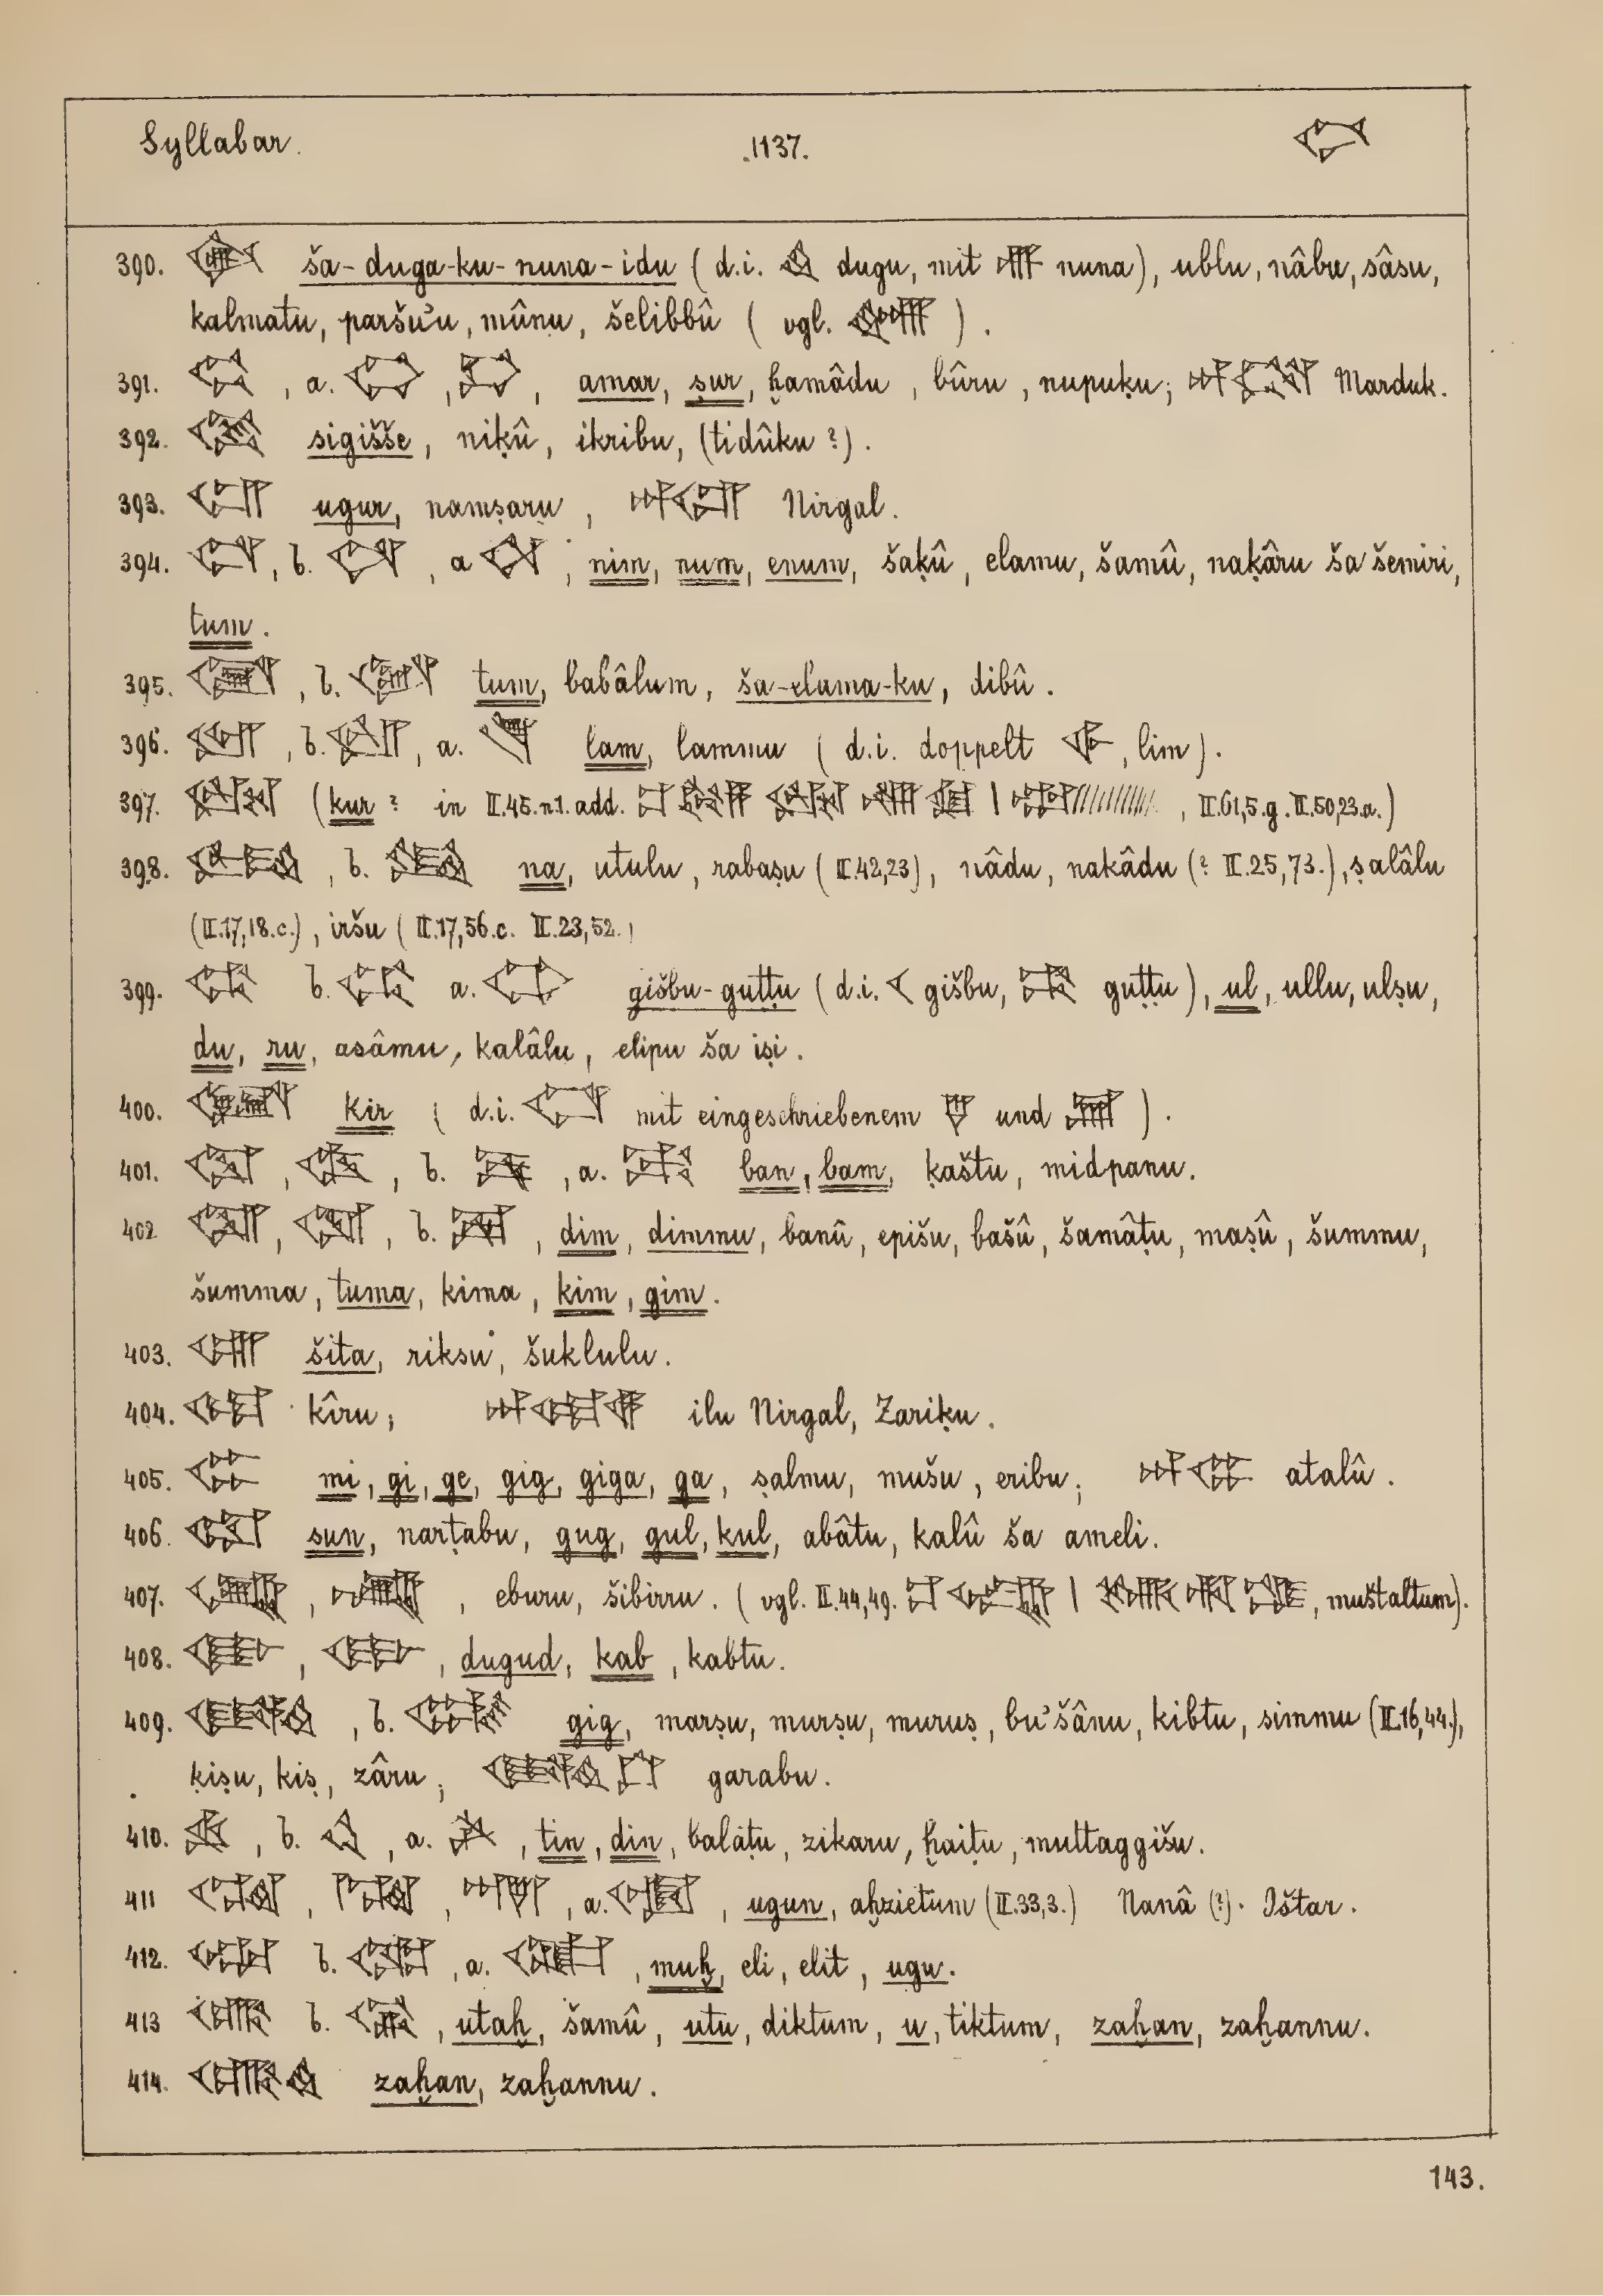 Syllabar. .1137.
390. ša-duga-ku-nuna-idu (d.i. dugu, mit nuna), ublu, nâbu, sâsu,
kalmatu, paršu'u, mûnu, šelibbû ( vgl. ).
391. , a. , , amar, ṣur, ḫamâdu, bûru, nupuḳu; Marduk.
392. sigišše, niḳû, ikribu, (tidûku ?).
393. ugur, namṣaru, Nirgal.
394. , b. , a , nim, num, enum, šaḳû, elamu, šamû, naḳâru ša šemiri,
tum.
395. , b. tum, babâlum, ša-elama-ku, dibû.
396. , b. , a. lam, lammu ( d.i. doppelt , lim ).
397. (kur ? in II.45.n1.add. | , II.61,5.g. II.50,23.a.)
398. , b. na, utulu, rabaṣu ( II.42,23), nâdu, nakâdu (? II.25,73.), ṣalâlu
(II.17,18.c.), iršu ( II.17,56.c. II.23,52.)
399. b. a. gišbu-guṭṭu ( d.i. gišbu, guṭṭu ), ul, ullu, ulṣu,
du, ru, asâmu, kalâlu, elipu ša iṣi.
400. kir ( d.i. mit eingeschriebenem und ).
401. , , b. , a. ban, bam, ḳaštu, midpanu.
402 , , b. , dim, dimmu, banû, epišu, bašû, šamâṭu, maṣû, šummu,
šumma, tuma, kima, kim, gim.
403. šita, riksu, šuklulu.
404. kîru; ilu Nirgal, Zariḳu.
405. mi, gi, ge, gig, giga, ga, ṣalmu, mušu, eribu; atalû.
406. sun, narṭabu, gug, gul, kul, abâtu, kalû ša ameli.
407. , , eburu, šibirru. ( vgl. II.44,49. | , muštaltum).
408. , , dugud, kab, kabtu.
409. , b. gig, marṣu, murṣu, muruṣ, bu'šânu, kibtu, simmu (II.16,44.),
ḳiṣu, kiṣ, zâru; garabu.
410. , b. , a. , tin, din, balaṭu, zikaru, ḫaiṭu, muttaggišu.
411 , , , a. , ugun, aḫzietum (II.33,3.) Nanâ (?). Ištar.
412. b. , a. , muḫ, eli, elit, ugu.
413 b. , utaḫ, šamû, utu, diktum, u, tiktum, zaḫan, zaḫannu.
414. zaḫan, zaḫannu.
143.